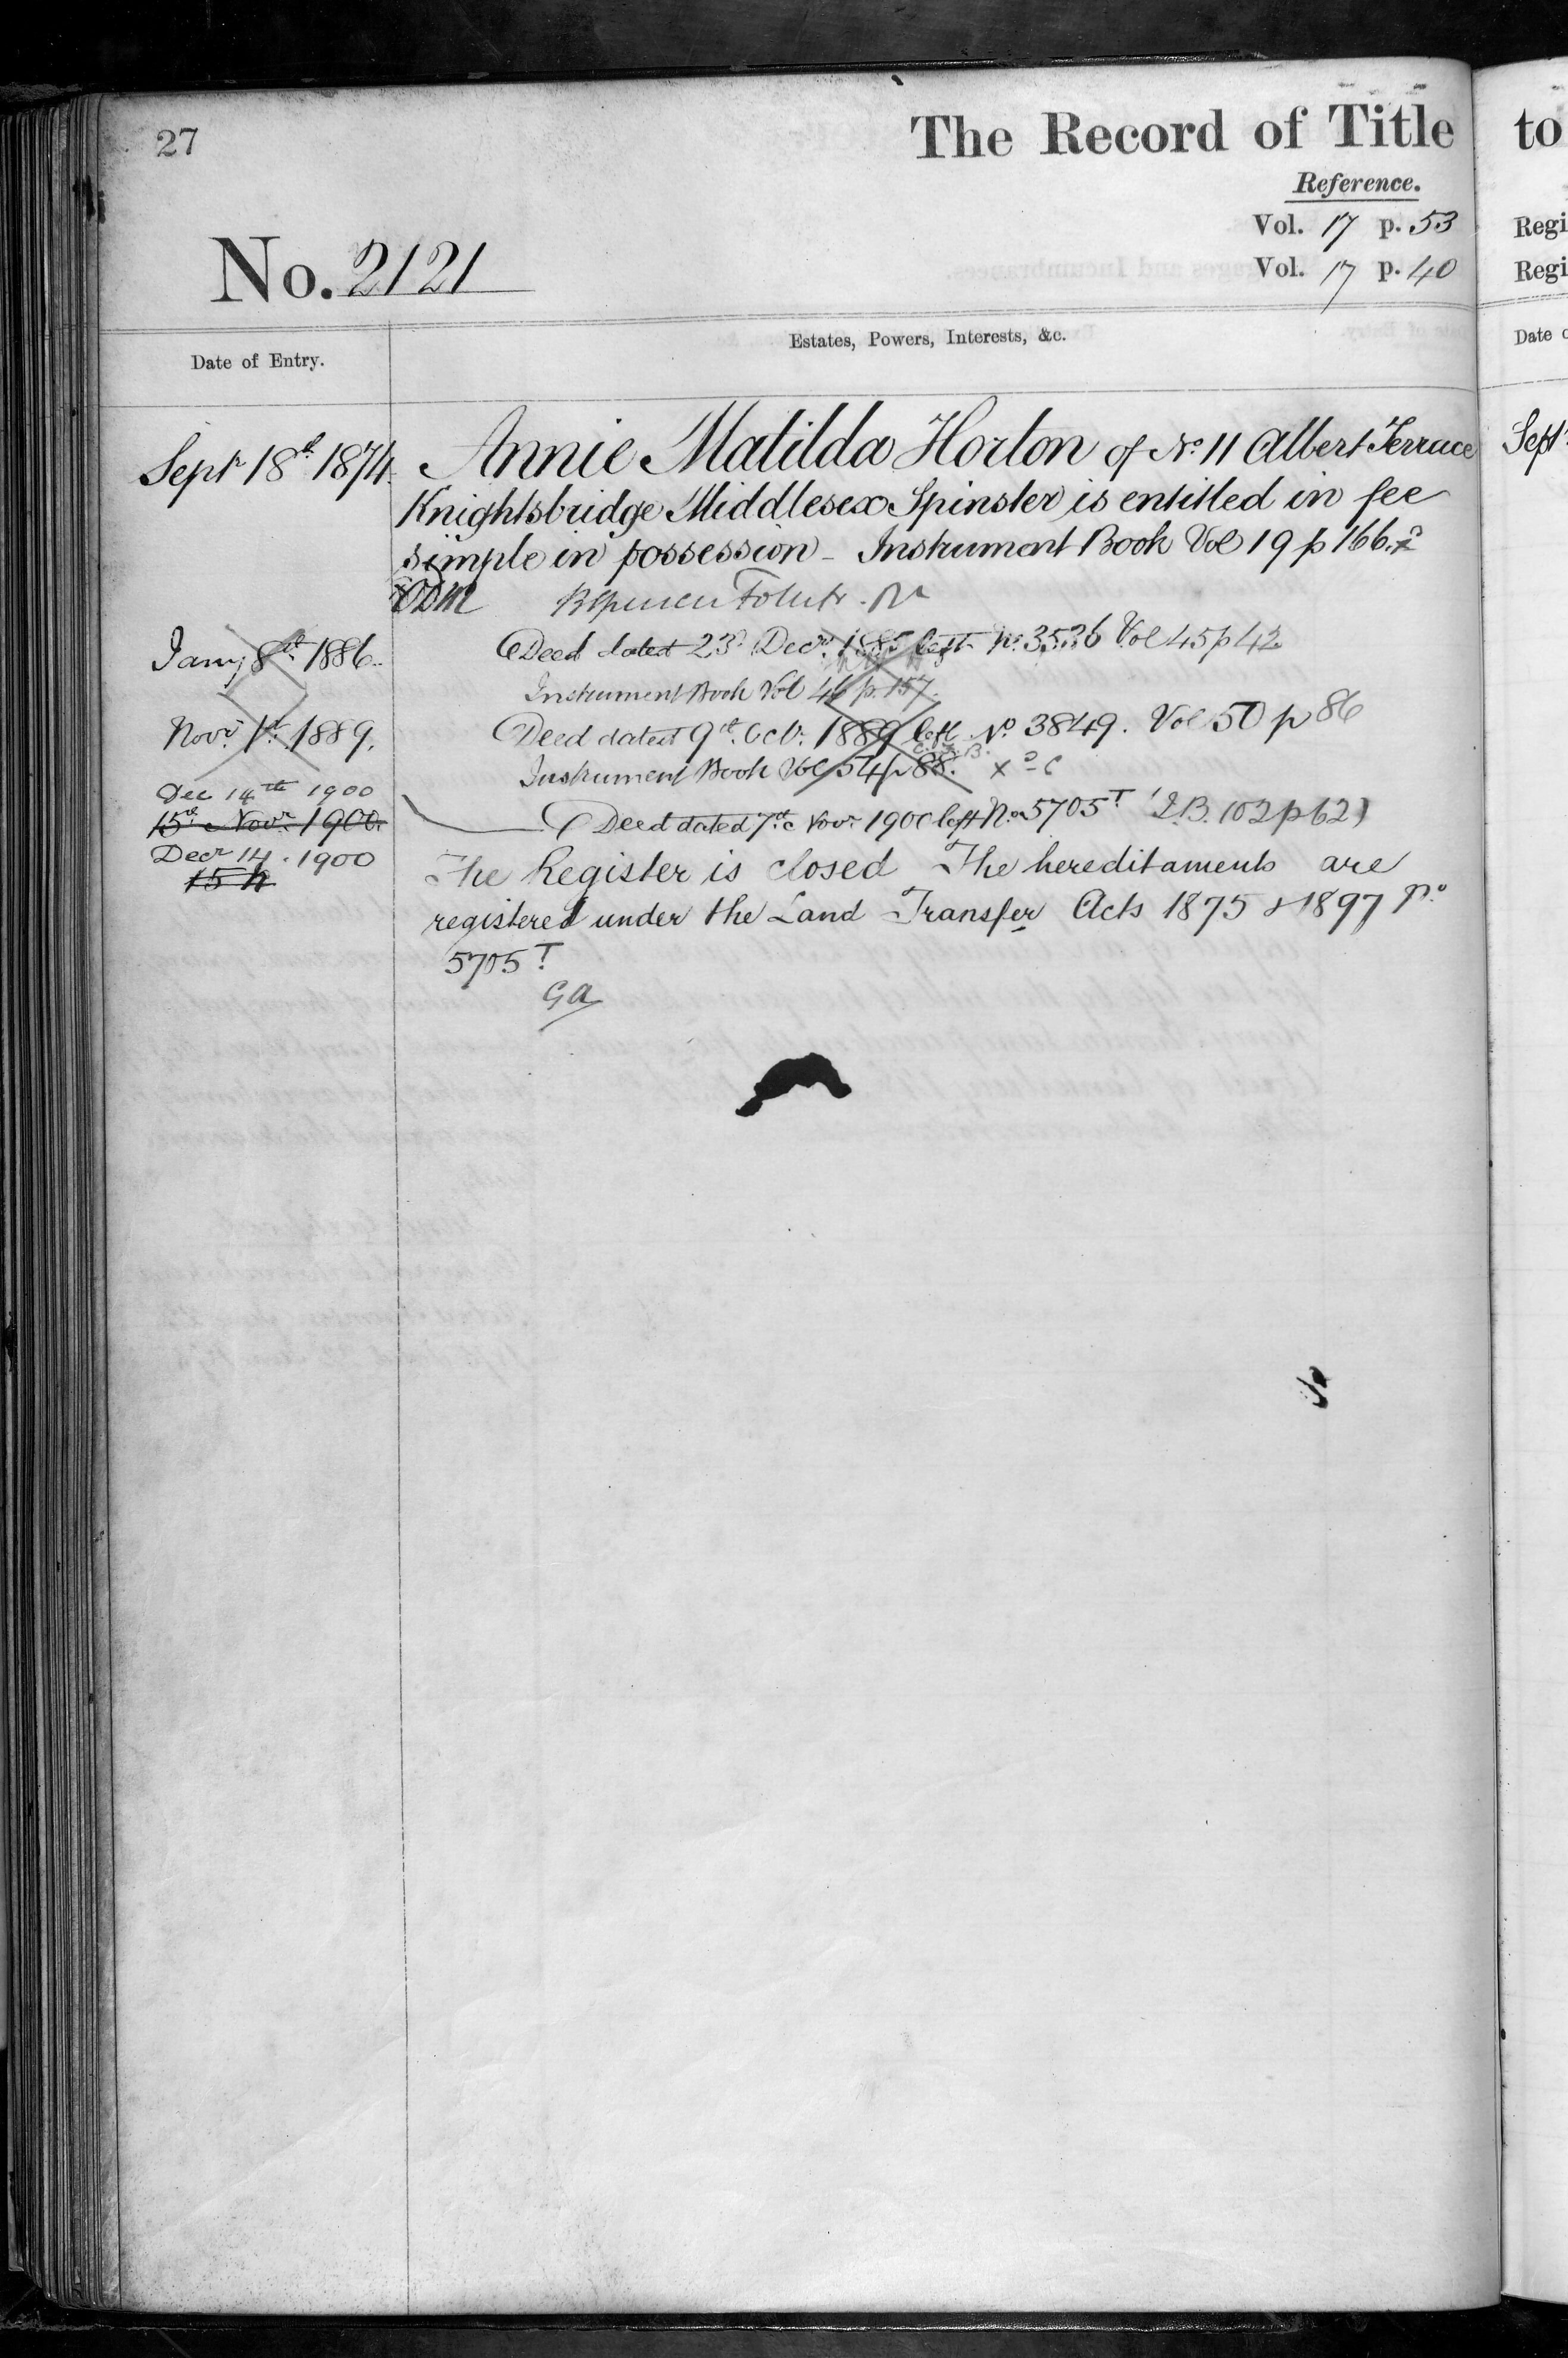 27
The Record of Title
Reference.
Vol. 17 p. 53
Vol. 17 p. 40
No. 2121
Date of Entry.
Estates, Powers, Interests, &c.
Sept 18th 1874. Annie Matilda Horton of No. 11 Albert Terrace
Knightsbridge Middlesex Spinster is entitled in fee
simple in possession - Instrument Book Vol 19 p 166.
Jany 8th 1886. Deed dated 23d Decr. 1885 left No. 3536 Vol 45 p 42
Instrument Book Vol 46 p. 157.
Novr. 1st 1889. Deed dated 9th Octr. 1889 left No 3849. Vol 50 p 86
C.F.B.
Instrument Book Vol 54 p 88.
Dec 14th 1900
15th Novr. 1900 Deed dated 7th Novr 1900 left No 5705T I.B. 102 p 62)
Decr 14. 1900 The Register is closed The hereditaments are
15th
registered under the Land Transfer Acts 1875 & 1897 No.
5705T
GA
to
Regi
Regi
Date o
Sept